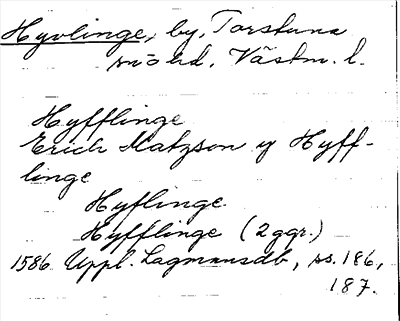 Hyvlinge, by, Torstuna
snöhd, Västm. l.
Hyfflinge
Erich Matzson y Hyff-
linge
Hyflinge
Hyfflinge (2 ggr.)
1586 Uppl. Lagmansdb, ss. 186,
187.